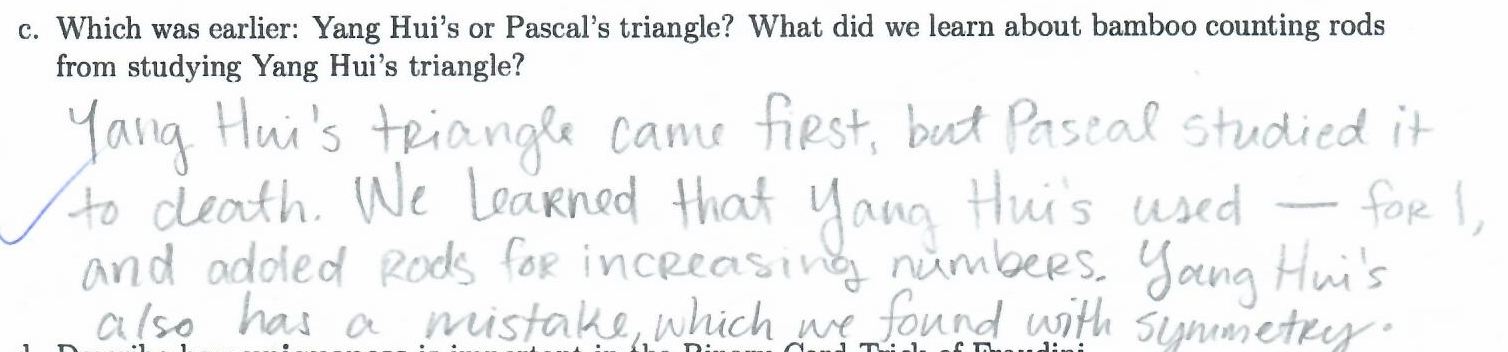 c. Which was earlier: Yang Hui's or Pascal's triangle? What did we learn about bamboo counting rods
from studying Yang Hui's triangle?
Yang Hui's triangle came first, but Pascal studied it
to death. We learned that Yang Hui's used — for 1,
and added rods for increasing numbers. Yang Hui's
also has a mistake, which we found with symmetry.